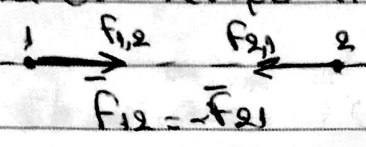 1 F₁,₂ F₂,₁ 2
F̅₁₂ = -F̅₂₁